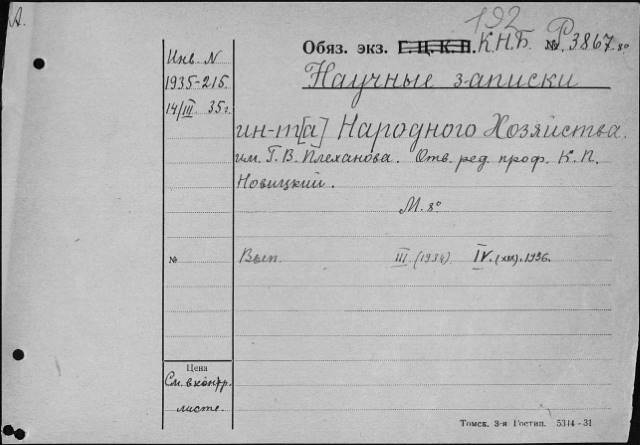 А.
192
Обяз. экз. Г. Ц. К. П. К.Н.Б. № Р 3867. 8°
Инв. N
1935-215
14/III 35 г.
Научные записки
ин-т[а] Народного Хозяйства.
им. Г. В. Плеханова. Отв. ред. проф. К. П.
Новицкий.
М. 8°
№ Вып. III (1934) IV. (XII). 1936.
Цена
См. в контр.
листе.
Томск. 3-я Гостип. 5314-31